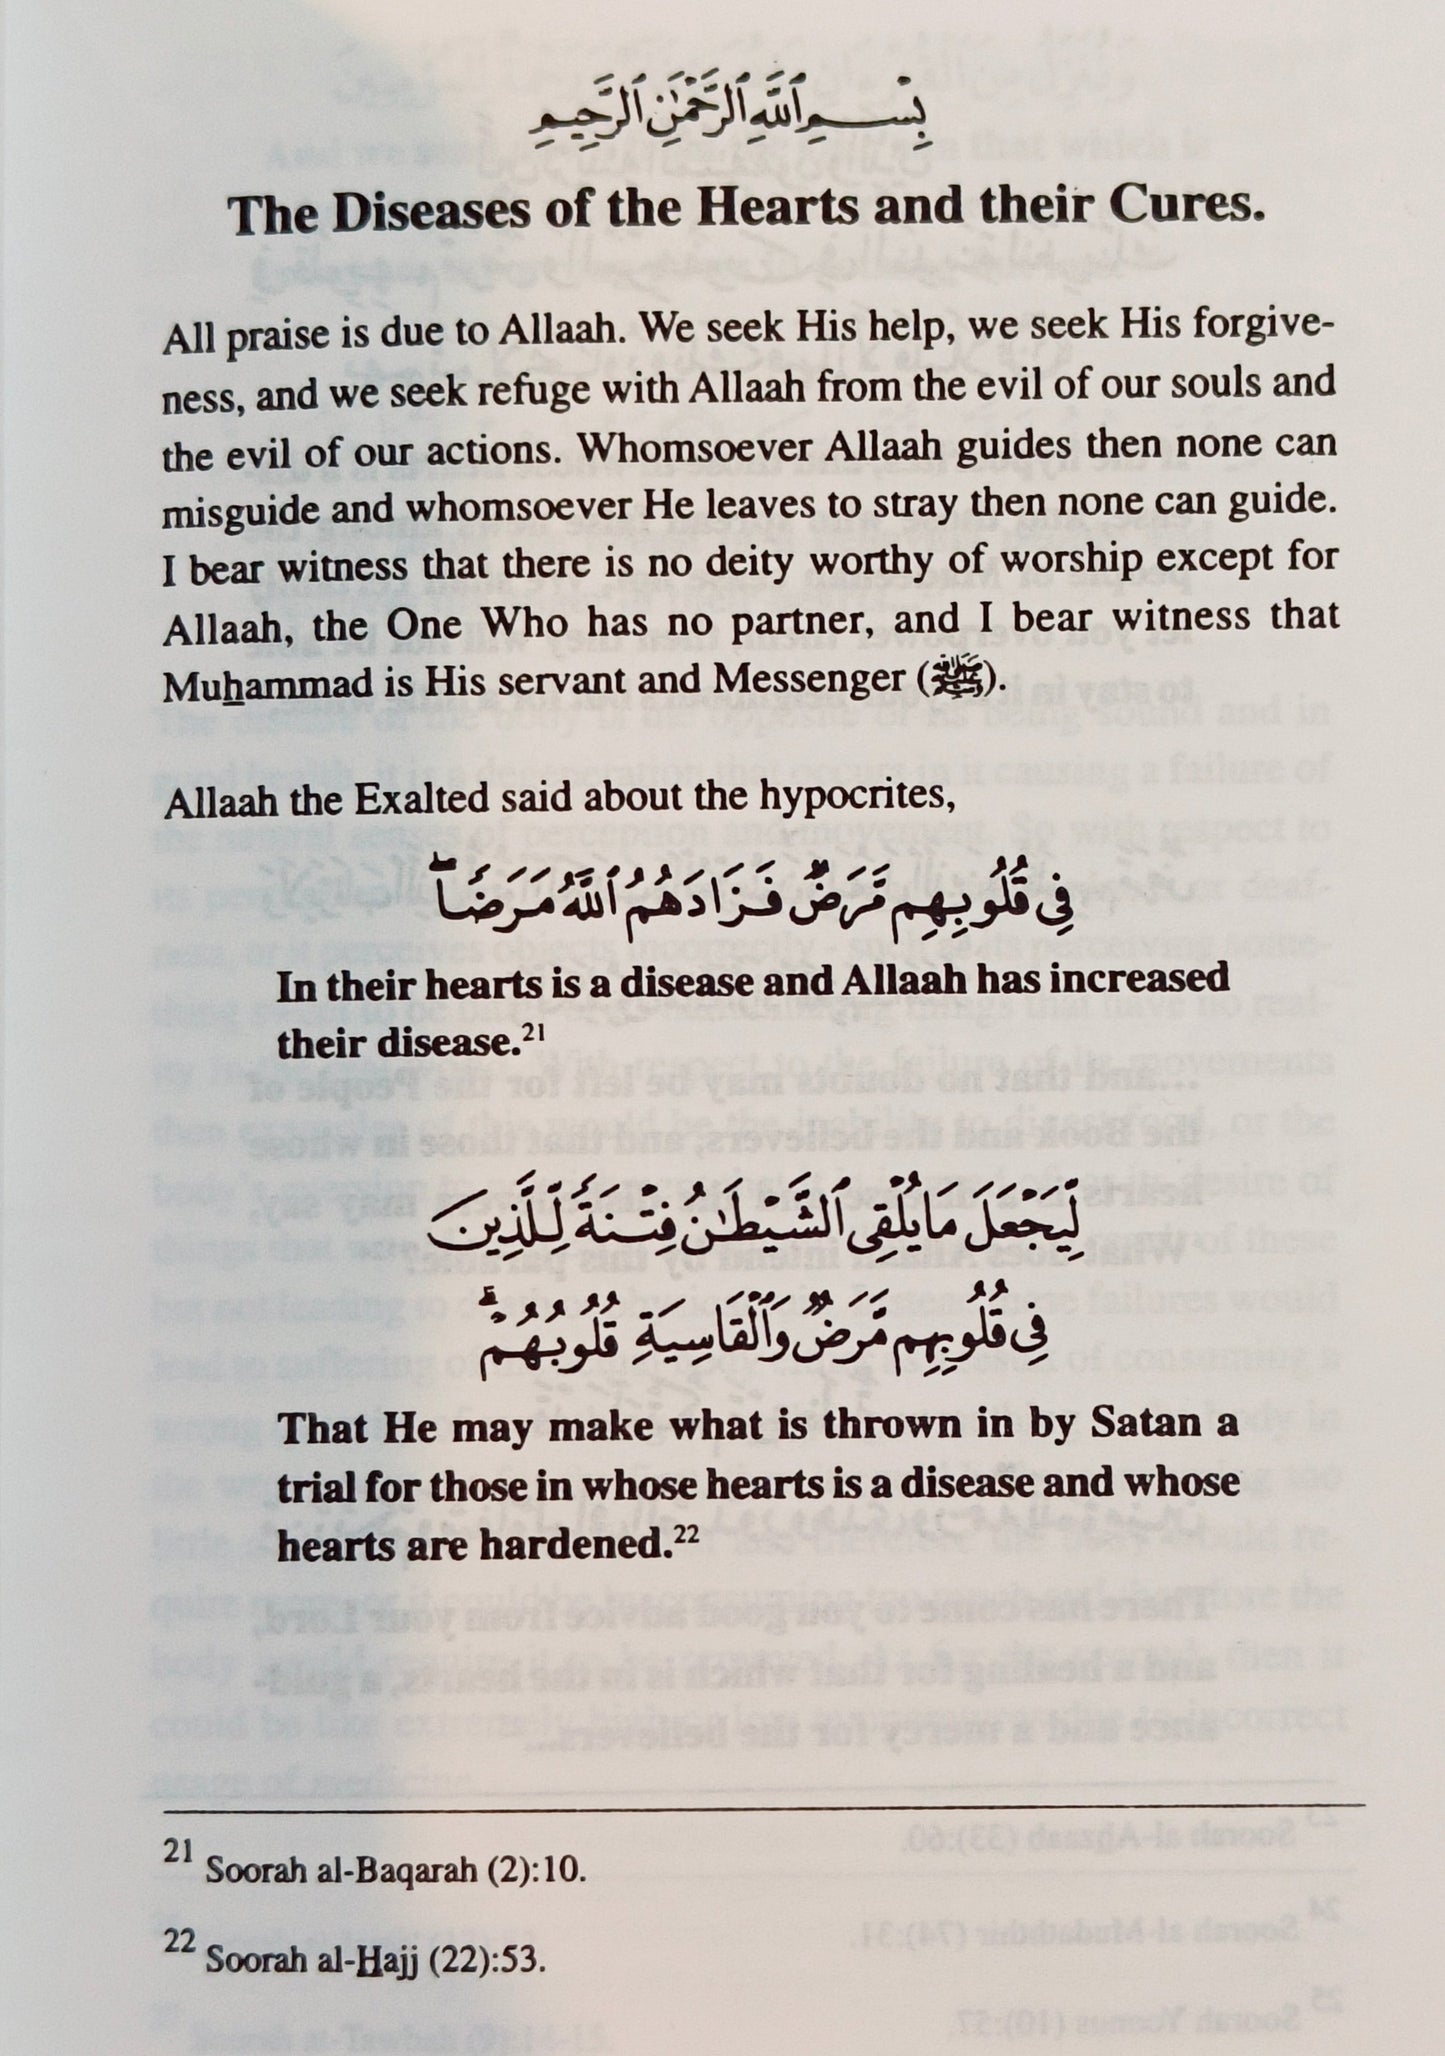 بِسْمِ ٱللَّهِ ٱلرَّحْمَٰنِ ٱلرَّحِيمِ
The Diseases of the Hearts and their Cures.
All praise is due to Allaah. We seek His help, we seek His forgive-
ness, and we seek refuge with Allaah from the evil of our souls and
the evil of our actions. Whomsoever Allaah guides then none can
misguide and whomsoever He leaves to stray then none can guide.
I bear witness that there is no deity worthy of worship except for
Allaah, the One Who has no partner, and I bear witness that
Muhammad is His servant and Messenger (ﷺ).
Allaah the Exalted said about the hypocrites,
فِى قُلُوبِهِم مَّرَضٌ فَزَادَهُمُ ٱللَّهُ مَرَضًا ۖ
In their hearts is a disease and Allaah has increased
their disease.²¹
لِّيَجْعَلَ مَا يُلْقِى ٱلشَّيْطَٰنُ فِتْنَةً لِّلَّذِينَ
فِى قُلُوبِهِم مَّرَضٌ وَٱلْقَاسِيَةِ قُلُوبُهُمْ ۗ
That He may make what is thrown in by Satan a
trial for those in whose hearts is a disease and whose
hearts are hardened.²²
21 Soorah al-Baqarah (2):10.
22 Soorah al-Hajj (22):53.